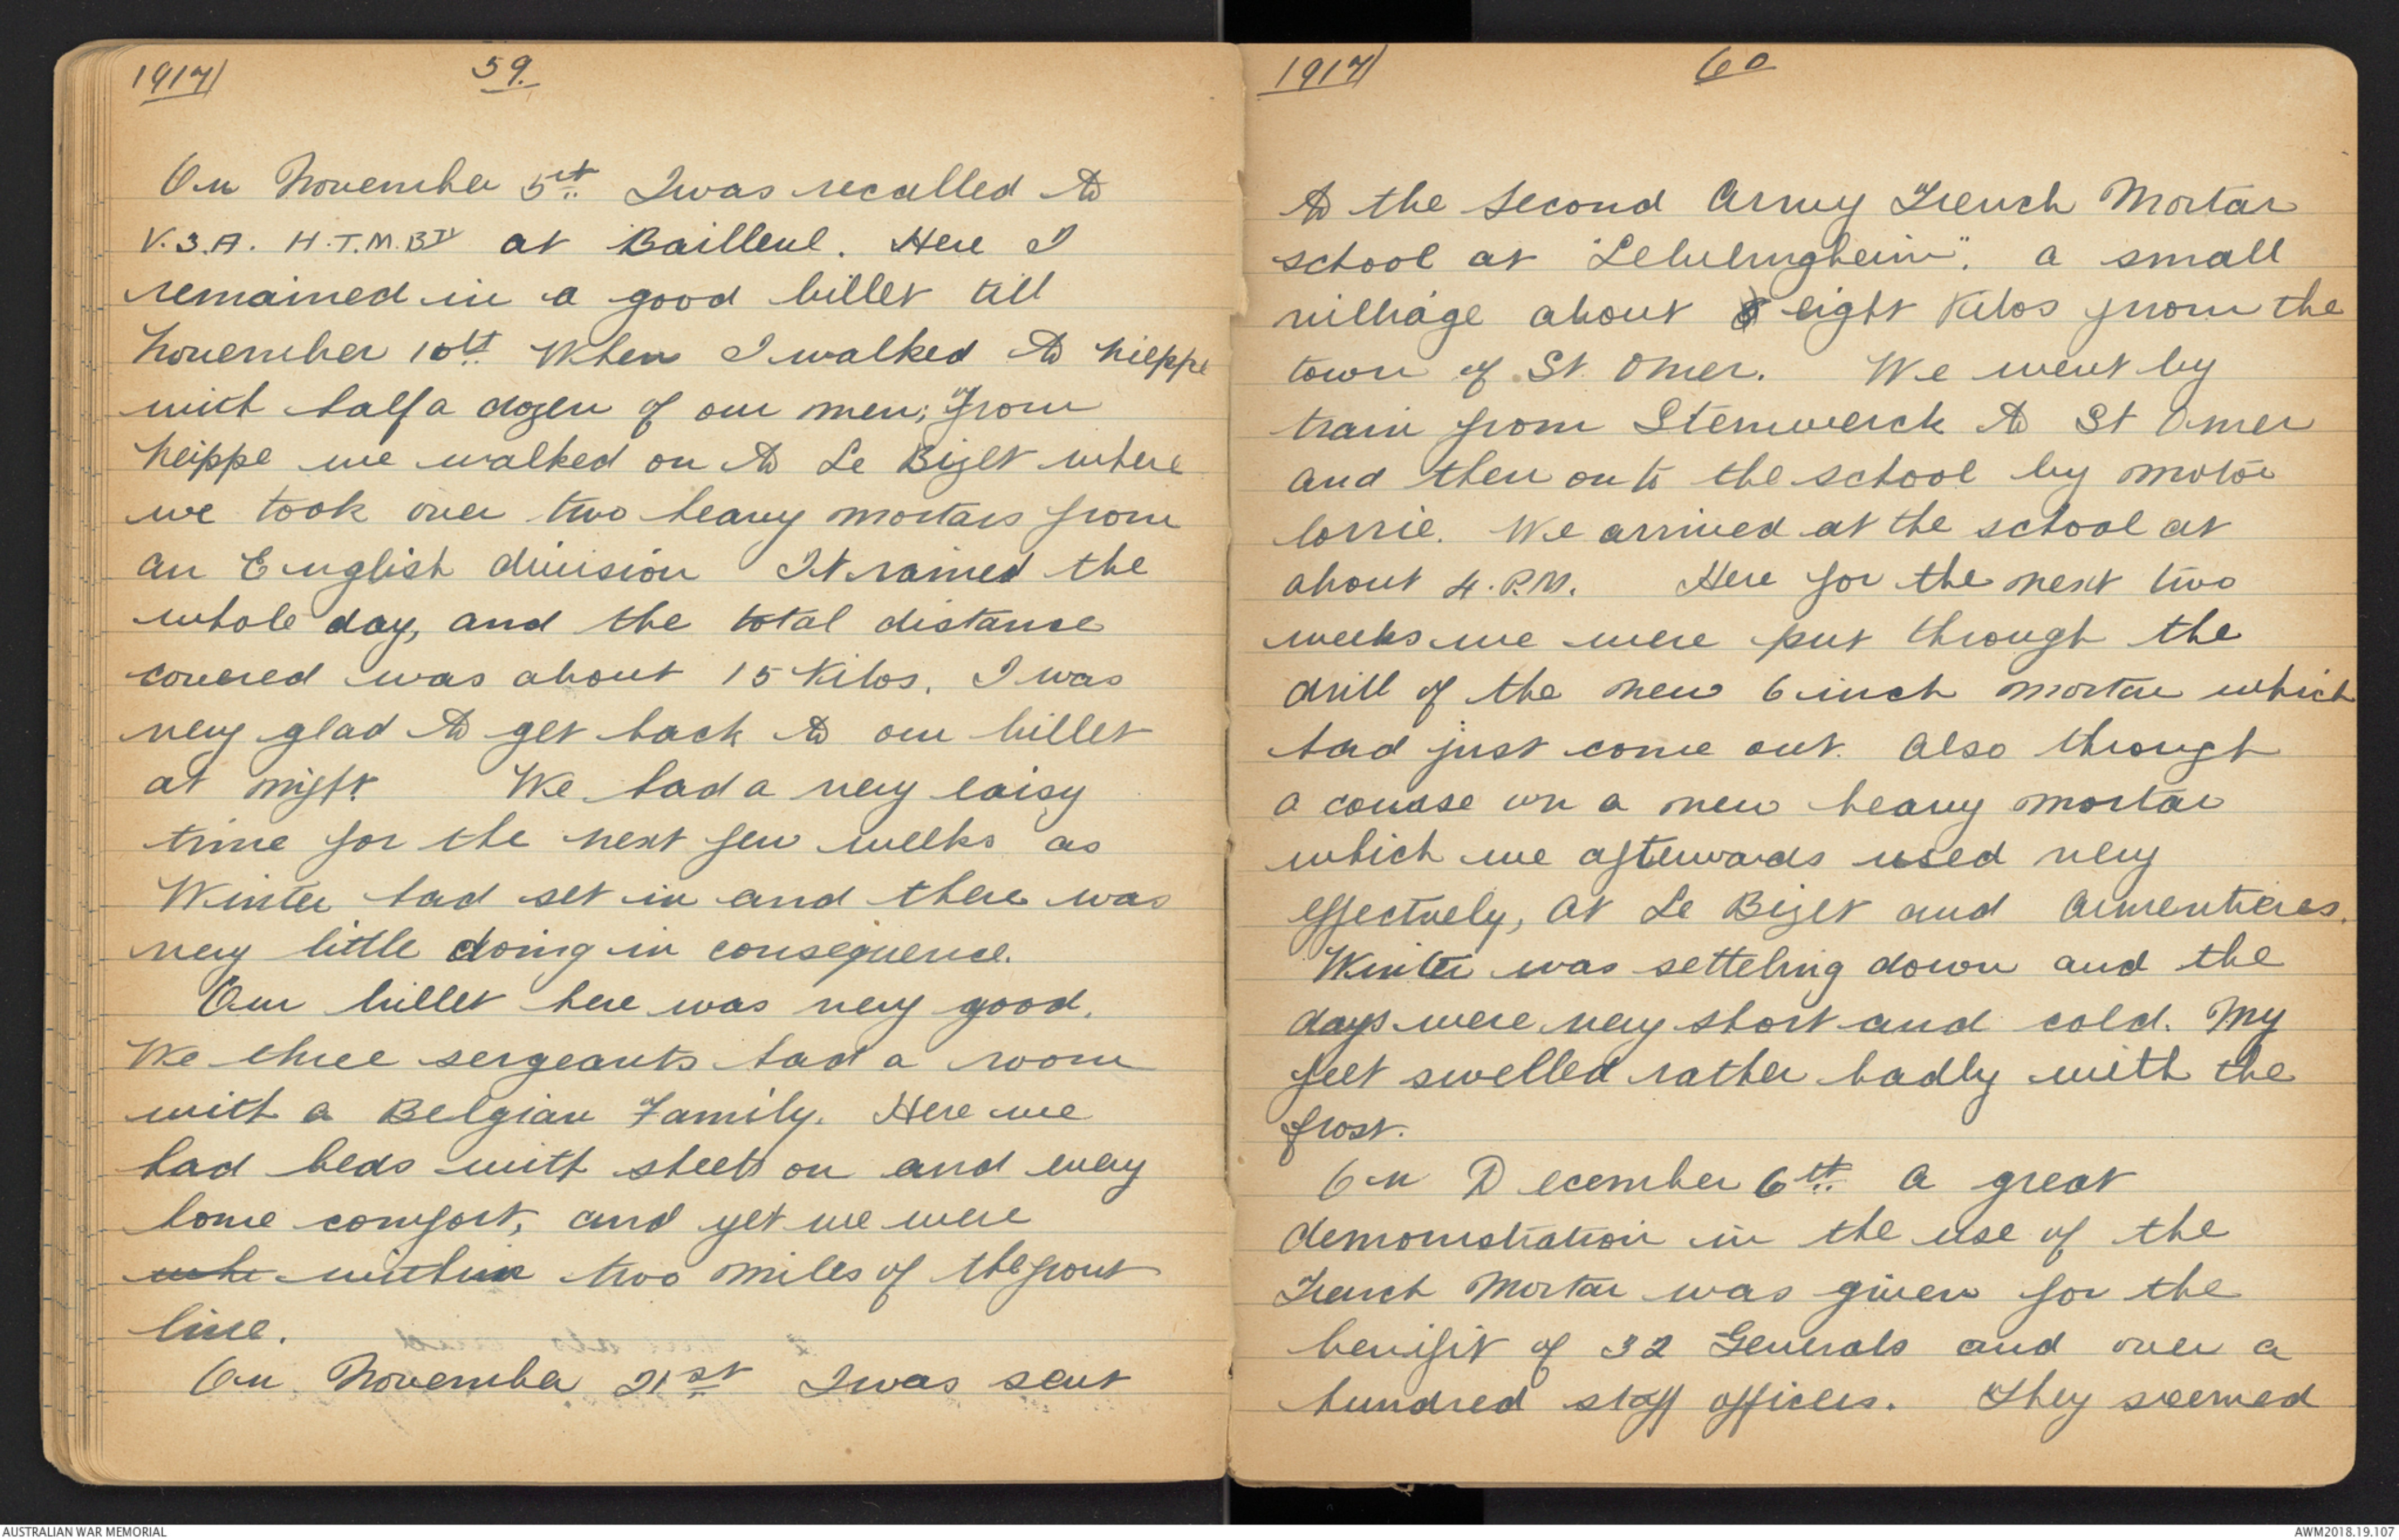 1917
59.
On November 5th I was recalled to
V.3.A. H.T.M.BTY at Bailleul. Here I
remained in a good billet till
November 10th When I walked to Nieppe
with half a dozen of our men; from
Neippe we walked on to Le Bizet where
we took over two heavy mortars from
an English division It rained the
whole day, and the total distance
covered was about 15 Kilos. I was
very glad to get back to our billet
at night. We had a very eaisy
time for the next few weeks as
Winter had set in and there was
very little doing in consequence.
Our billet here was very good.
We three sergeants had a room
with a Belgian Family. Here we
had beds with sheets on and every
home comfort, and yet we were
within two miles of the front
line.
On November 21st I was sent
1917
60
to the Second Army Trench Mortar
school at "Lelulingheim". a small
villiage about eight Kilos from the
town of St. Omer. We went by
train from Stenwerck to St Omer
and then on to the school by motor
lorrie. We arrived at the school at
about 4. P.M. Here for the next two
weeks we were put through the
drill of the new 6 inch mortar which
had just come out. Also through
a couase on a new heavy mortar
which we afterwards used very
effectively, at Le Bizet and Armentieres.
Winter was setteling down and the
days were very short and cold. My
feet swelled rather badly with the
frost.
On December 6th a great
demonstration in the use of the
Trench Mortar was given for the
benifit of 32 Generals and over a
hundred staff officers. They seemed
AUSTRALIAN WAR MEMORIAL
AWM2018.19.107